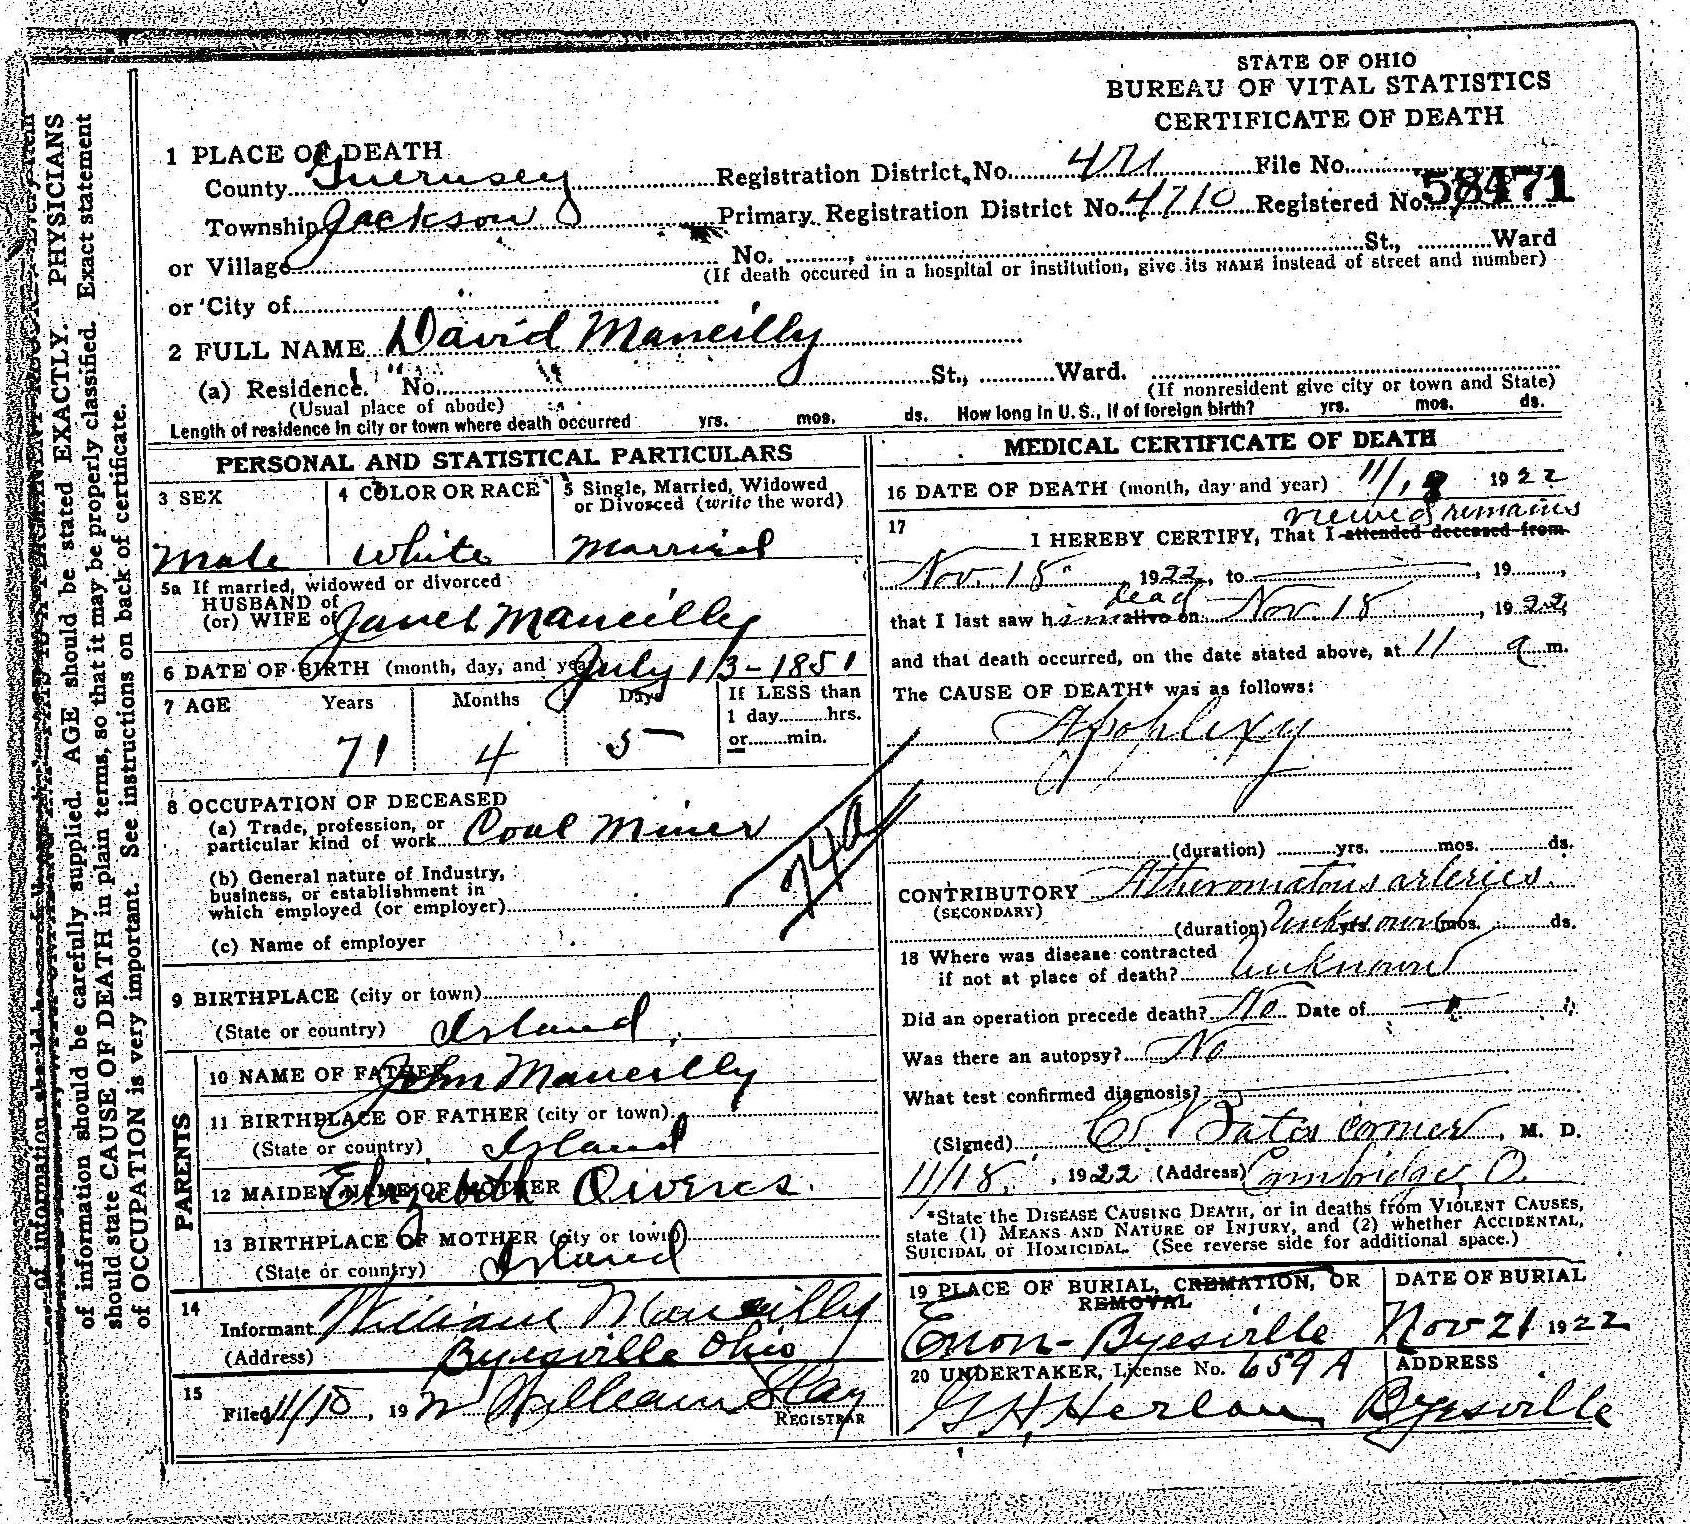 STATE OF OHIO
BUREAU OF VITAL STATISTICS
CERTIFICATE OF DEATH
1 PLACE OF DEATH
County Guernsey Registration District No. 471 File No. 58471
Township Jackson Primary Registration District No. 4710 Registered No.
or Village No. St., Ward
(If death occured in a hospital or institution, give its NAME instead of street and number)
or City of
2 FULL NAME David Maneilly
(a) Residence. No. St., Ward.
(Usual place of abode) (If nonresident give city or town and State)
Length of residence in city or town where death occurred yrs. mos. ds. How long in U. S., if of foreign birth? yrs. mos. ds.
PERSONAL AND STATISTICAL PARTICULARS
3 SEX
Male
4 COLOR OR RACE
White
5 Single, Married, Widowed
or Divorced (write the word)
Married
5a If married, widowed or divorced
HUSBAND of
(or) WIFE of Janet Maneilly
6 DATE OF BIRTH (month, day, and year) July 13-1851
7 AGE Years Months Days If LESS than
1 day hrs.
or min.
71 4 5
8 OCCUPATION OF DECEASED
(a) Trade, profession, or
particular kind of work Coal Miner
(b) General nature of Industry,
business, or establishment in
which employed (or employer)
(c) Name of employer
74a
9 BIRTHPLACE (city or town)
(State or country) Irland
PARENTS
10 NAME OF FATHER John Maneilly
11 BIRTHPLACE OF FATHER (city or town)
(State or country) Irland
12 MAIDEN NAME OF MOTHER Elizabeth
13 BIRTHPLACE OF MOTHER (city or town)
(State or country) Irland
14
Informant William Maneilly
(Address) Byesville Ohio
15
Filed 11/18, 1922 William Slay
REGISTRAR
MEDICAL CERTIFICATE OF DEATH
16 DATE OF DEATH (month, day and year) 11/18 1922
17 viewed remains
I HEREBY CERTIFY, That I attended deceased from
Nov. 18 1922, to , 19 ,
dead
that I last saw him alive on Nov. 18, 1922,
and that death occurred, on the date stated above, at 11 a m.
The CAUSE OF DEATH* was as follows:
Apoplexy
(duration) yrs. mos. ds.
CONTRIBUTORY Atheromatous arteries.
(SECONDARY)
(duration) Unknown yrs. mos. ds.
18 Where was disease contracted
if not at place of death? Unknown
Did an operation precede death? No Date of
Was there an autopsy? No
What test confirmed diagnosis?
(Signed) Bates coroner, M. D.
11/18, 1922 (Address) Cambridge, O.
*State the DISEASE CAUSING DEATH, or in deaths from VIOLENT CAUSES,
state (1) MEANS AND NATURE OF INJURY, and (2) whether ACCIDENTAL,
SUICIDAL or HOMICIDAL. (See reverse side for additional space.)
19 PLACE OF BURIAL, CREMATION, OR
REMOVAL
Enon-Byesville
DATE OF BURIAL
Nov 21 1922
20 UNDERTAKER, License No. 659A
G H Herlan
ADDRESS
Byesville
of information should be carefully supplied. AGE should be stated EXACTLY. PHYSICIANS
should state CAUSE OF DEATH in plain terms, so that it may be properly classified. Exact statement
of OCCUPATION is very important. See instructions on back of certificate.